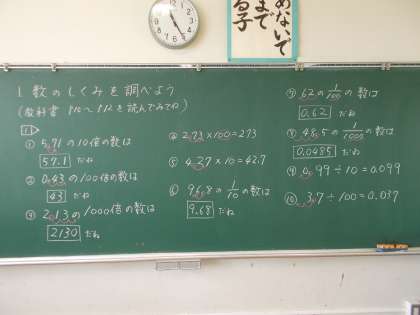 めないで
まで
る子
1. 数のしくみを調べよう
(教科書 を読んでみてね)
1
① 5.71の10倍の数は
57.1 だね
② 0.43の100倍の数は
43 だね
③ 2.13の1000倍の数は
2130 だね
④ 2.73×100=273
⑤ 4.27×10=42.7
⑥ 96.8の1/10の数は
9.68 だね
⑦ 62の1/100の数は
0.62 だね
⑧ 48.5の1/1000の数は
0.0485 だね
⑨ 0.99÷10=0.099
⑩ 3.7÷100=0.037